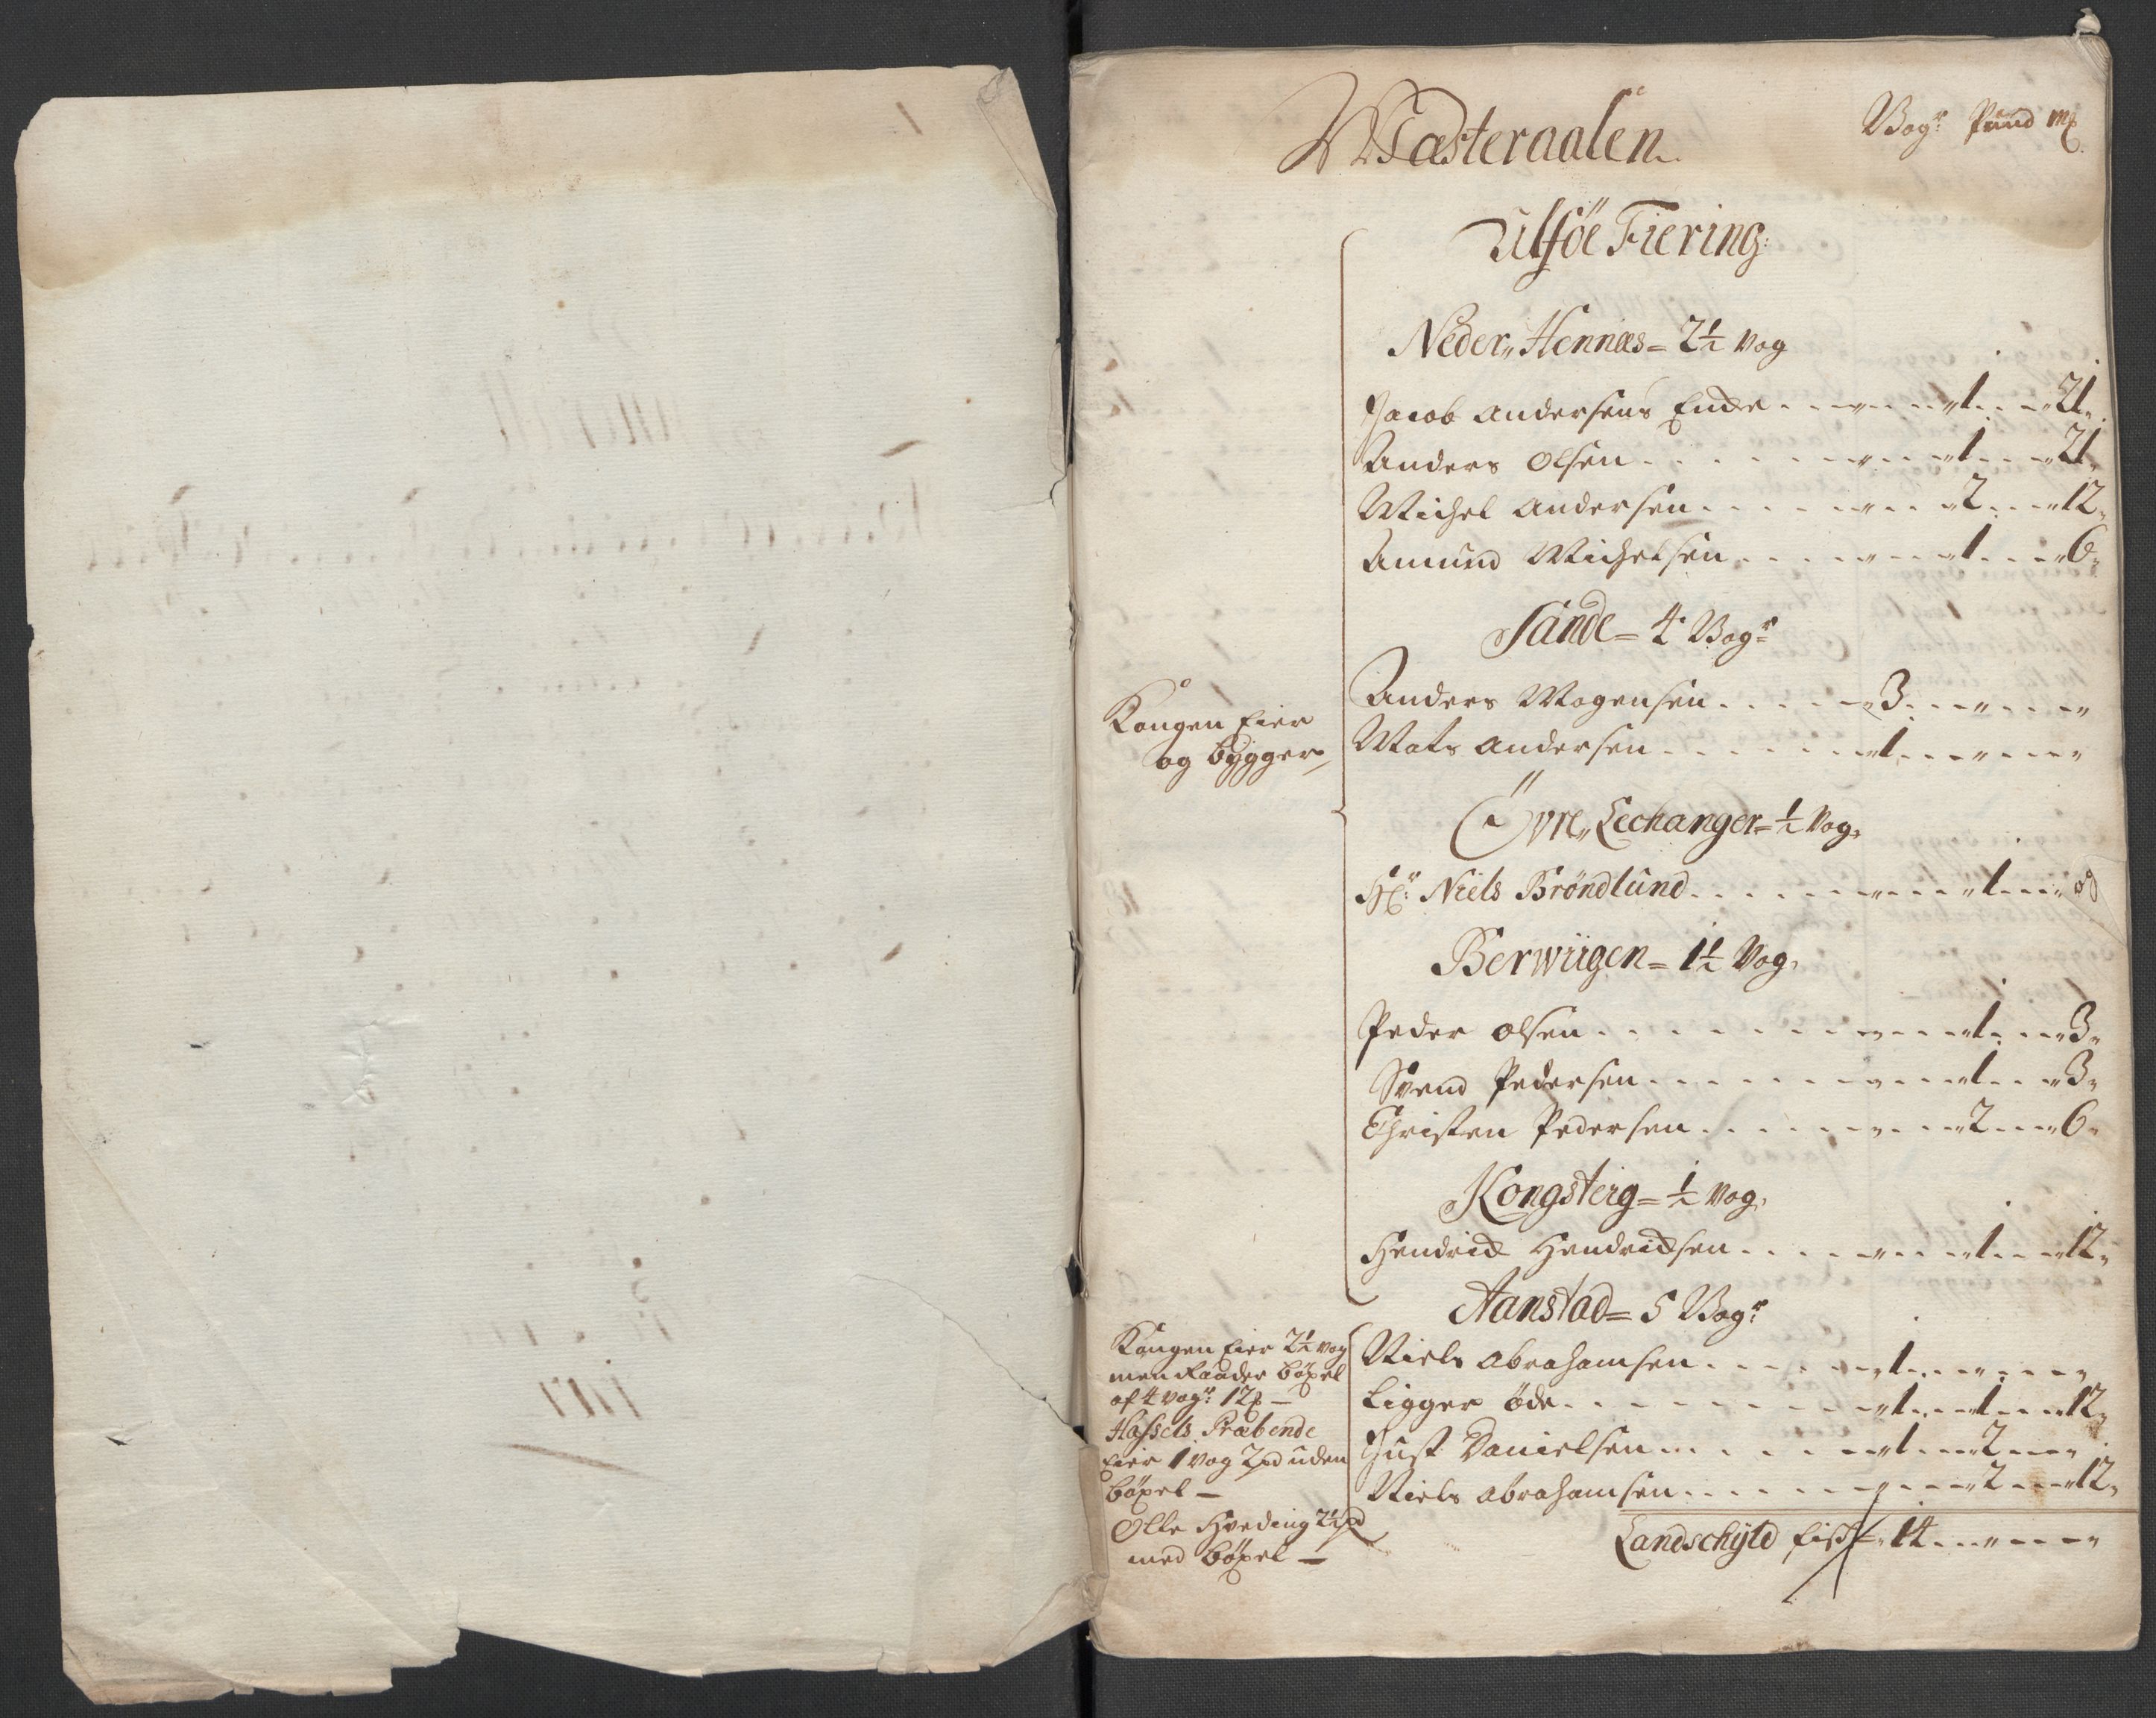 Wæsteraalen
Vogr Pund mk
Ulföe Fiering
Neder Hennæs = 2½ Vog
Jacob Andersens Encke - 1 - 21
Anders Olsen - 1 - 21
Michel Andersen - 2 - 12
Amund Michelsen - 1 - 6
Sande = 4 Vogr
Kongen Eier
og bygger
Anders Mogensen - 3
Mats Andersen - 1
Öyre Lechanger = ½ Vog
Hr Niels Bröndlund - 1
Berwiigen = 1½ Vog
Peder Olsen - 1 - 3
Svend Pedersen - 1 - 3
Christen Pedersen - 2 - 6
Kongsteig = ½ Vog
Hendrick Hendricksen - 1 - 12
Aanstad = 5 Vogr
Kongen Eier 2½ vog
men Raader böxel
af 4 vogr 12 mk
Hassels Præbende
Eier 1 vog 2 pd uden
böxel
Olle Hveding 2½ pd
med böxel
Niels Abrahamsen - 1
Ligger öde - 1 - 1 - 12
Just Danielsen - 1 - 2
Niels Abrahamsen - 2 - 12
Landschyld fisk = 14